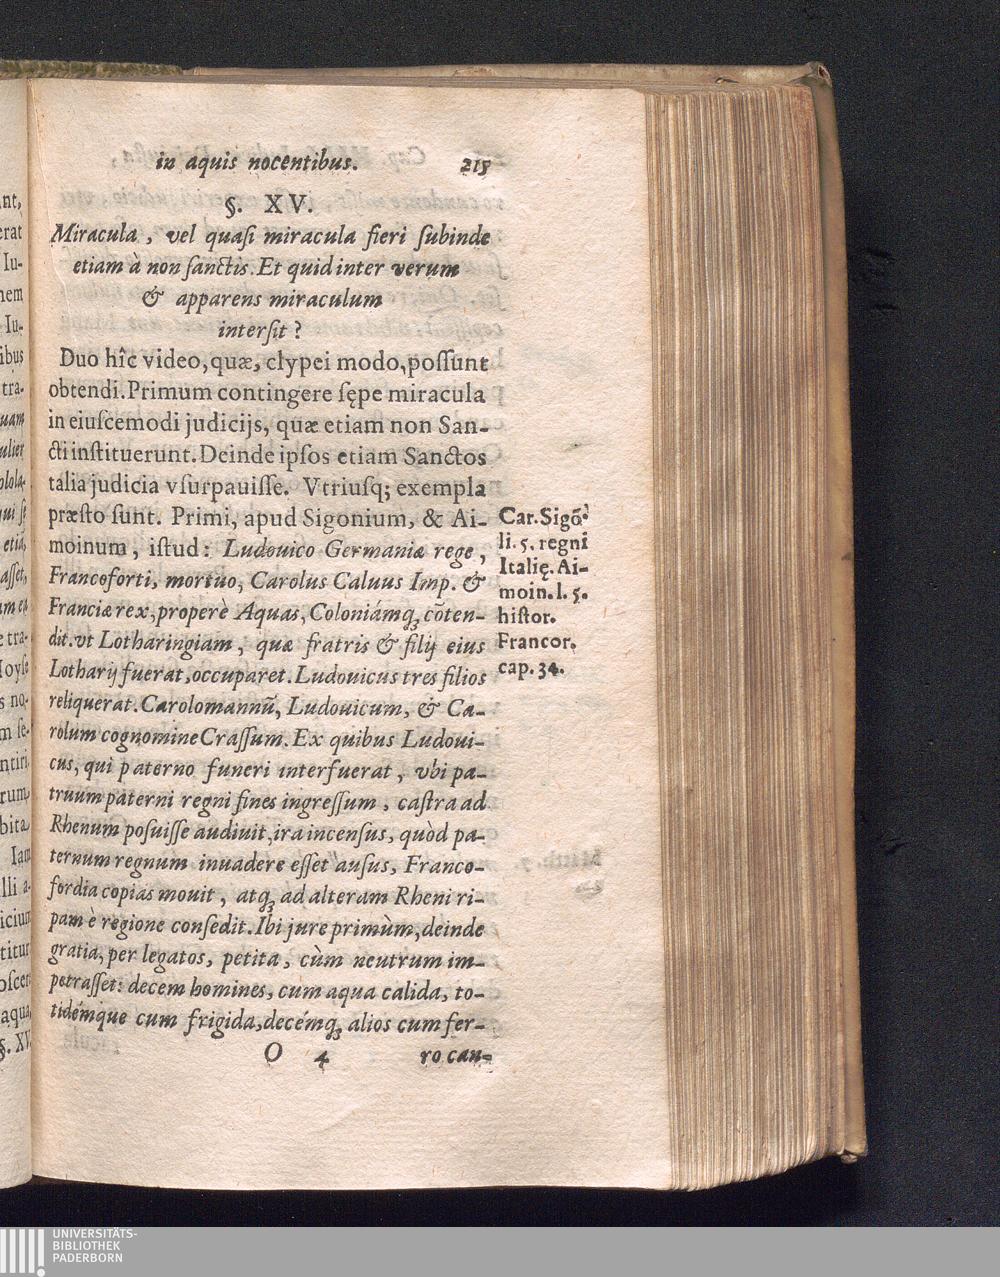 in aquis nocentibus. 215
§. XV.
Miracula, vel quaſi miracula fieri ſubinde
etiam à non ſanctis. Et quid inter verum
& apparens miraculum
interſit?
Duo hîc video, quæ, clypei modo, poſſunt
obtendi. Primum contingere ſępe miracula
in eiuſcemodi judicijs, quæ etiam non San-
cti inſtituerunt. Deinde ipſos etiam Sanctos
talia judicia vſurpauiſſe. Vtriuſq; exempla
præſto ſunt. Primi, apud Sigonium, & Ai-
moinum, iſtud: Ludouico Germaniæ rege,
Francoforti, mortuo, Carolus Caluus Imp. &
Franciæ rex, properè Aquas, Coloniámq; cõten-
dit. vt Lotharingiam, quæ fratris & filij eius
Lotharij fuerat, occuparet. Ludouicus tres filios
reliquerat. Carolomannũ, Ludouicum, & Ca-
rolum cognomine Craſſum. Ex quibus Ludoui-
cus, qui paterno funeri interfuerat, vbi pa-
truum paterni regni fines ingreſſum, caſtra ad
Rhenum poſuiſſe audiuit, ira incenſus, quòd pa-
ternum regnum inuadere eſſet auſus, Franco-
fordia copias mouit, atq; ad alteram Rheni ri-
pam è regione conſedit. Ibi jure primùm, deinde
gratia, per legatos, petita, cùm neutrum im-
petraſſet: decem homines, cum aqua calida, to-
tidémque cum frigida, decémq; alios cum fer-
O 4 ro can-
Car. Sigõ.
li. 5. regni
Italię. Ai-
moin. l. 5.
hiſtor.
Francor.
cap. 34.
UNIVERSITÄTS-
BIBLIOTHEK
PADERBORN